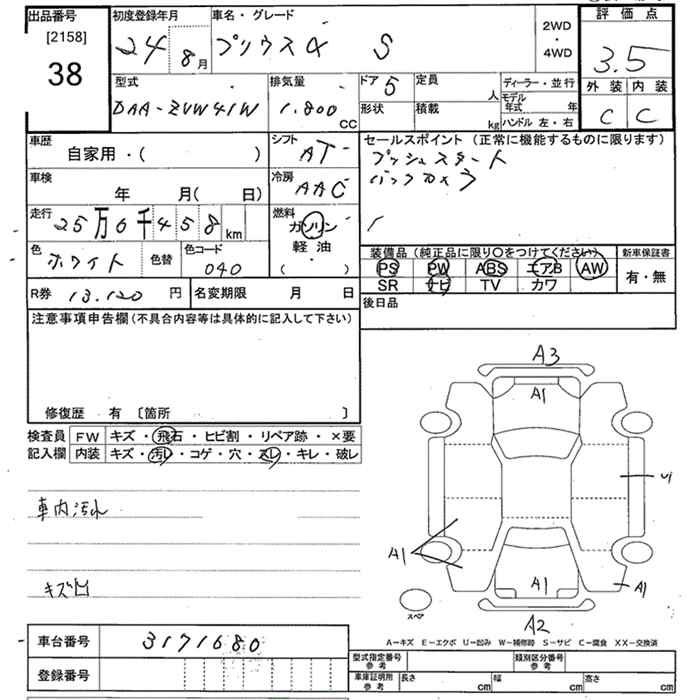 出品番号
[2158]
38
初度登録年月
24 8月
車名・グレード
プリウスα S
2WD
・
4WD
評価点
3.5
外装 内装
C C
型式
DAA-ZVW41W
排気量
1.800 CC
ドア 5
形状
定員 人
積載 kg
ディーラー・並行
モデル年式 年
ハンドル 左・右
車歴
自家用・( )
シフト
AT
セールスポイント (正常に機能するものに限ります)
プッシュスタート
バックカメラ
車検
年 月( 日)
冷房
AAC
走行
25万6千458 km
燃料
ガソリン
軽油
( ・ )
色
ホワイト
色替
色コード
040
装備品 (純正品に限り〇をつけてください)
PS PW ABS エアB AW
SR ナビ TV カワ
新車保証書
有・無
R券 13.120 円
名変期限 月 日
後日品
注意事項申告欄 (不具合内容等は具体的に記入して下さい)
修復歴 有 [箇所 ]
検査員
記入欄
FW キズ・飛石・ヒビ割・リペア跡・×要
内装 キズ・汚レ・コゲ・穴・スレ・キレ・破レ
車内汚れ
キズ凹
A3
A1
A1
A1
A1
A2
スペア
A-キズ E-エクボ U-凹み W-補修跡 S-サビ C-腐食 XX-交換済
車台番号 3171680
登録番号
型式指定番号
参考
類別区分番号
参考
車庫証明用
参考
長さ cm 幅 cm 高さ cm